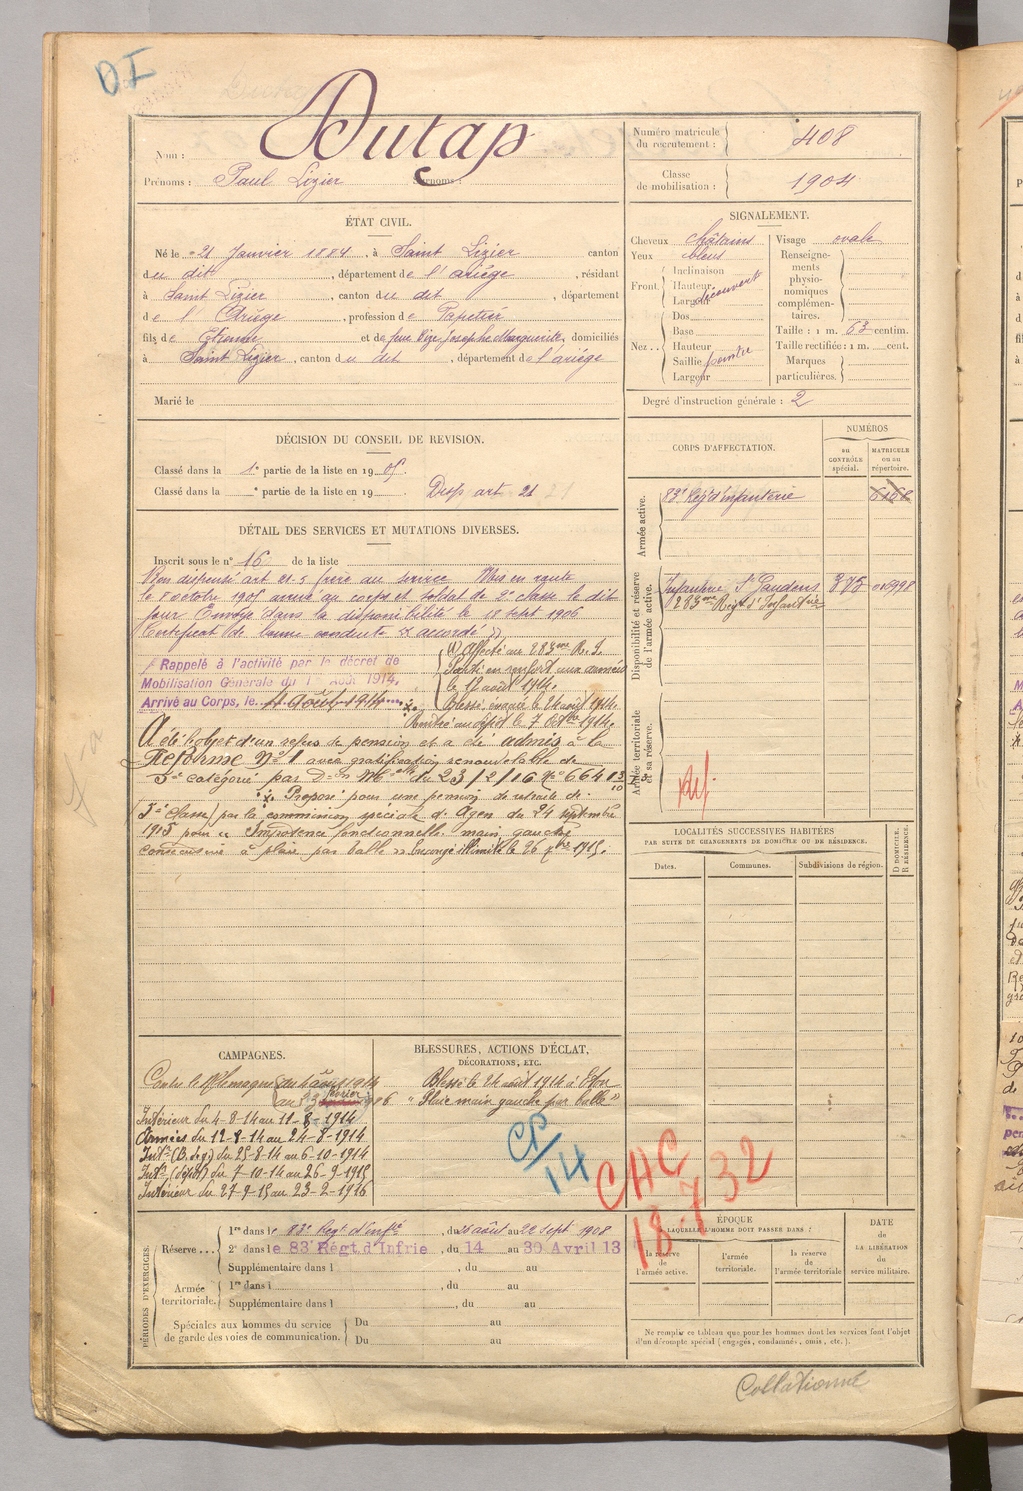 DI
Nom : Dutap
Prénoms : Paul Lizier Surnoms :
Numéro matricule du recrutement : 408
Classe de mobilisation : 1904
ÉTAT CIVIL.
Né le 21 Janvier 1884, à Saint Lizier canton
du dit, département de l'ariège, résidant
à Saint Lizier, canton du dit, département
de l'Ariège, profession de Papetier
fils de Etienne et de feu Vize Josephe Marguerite, domiciliés
à Saint Lizier, canton du dit, département de l'ariège
Marié le
SIGNALEMENT.
Cheveux châtains
Yeux bleus
Front. Inclinaison
Hauteur
Largeur découvert
Nez... Dos
Base
Hauteur
Saillie pointu
Largeur
Visage ovale
Renseignements physionomiques complémentaires.
Taille : 1 m. 63 centim.
Taille rectifiée : 1 m. cent.
Marques particulières.
Degré d'instruction générale : 2
DÉCISION DU CONSEIL DE REVISION.
Classé dans la 1e partie de la liste en 1905.
Classé dans la e partie de la liste en 19 Disp art 21
CORPS D'AFFECTATION.
NUMÉROS
au CONTRÔLE spécial.
MATRICULE ou au répertoire.
Armée active.
83e Régt d'infanterie
Disponibilité et réserve de l'armée active.
Infanterie St Gaudens 375 019998
283me Régt d'Infanterie
Armée territoriale et sa réserve.
Réf
DÉTAIL DES SERVICES ET MUTATIONS DIVERSES.
Inscrit sous le n° 16 de la liste
Bon dispensé art 21-5 frère au service Mis en route
le 8 octobre 1905 arrivé au corps et soldat de 2e classe le dit
jour Envoyé dans la disponibilité le 18 sept 1906
Certificat de bonne conduite « accordé »
Rappelé à l'activité par le décret de
Mobilisation Générale du 1er Août 1914.
Arrivé au Corps, le 4 Août 1914
(1) Affecté au 283me R.I.
Parti en renfort aux armées
le 12 août 1914.
Blessé, évacué le 24 août 1914.
Rentré au dépôt le 7 Octbre 1914.
A été l'objet d'un refus de pension et a été admis à la
Réforme N°1 avec gratification renouvelable de
5e catégorie par Don Melle du 23/2/16 N° 66413
Proposé pour une pension de retraite de
(5e classe) par la commission spéciale d'Agen du 24 septembre
1915 pour « Impotence fonctionnelle main gauche
consécutive à plaie par balle » En congé illimité le 26 7bre 1915.
LOCALITÉS SUCCESSIVES HABITÉES
PAR SUITE DE CHANGEMENTS DE DOMICILE OU DE RÉSIDENCE.
Dates.
Communes.
Subdivisions de région.
D DOMICILE. R RÉSIDENCE.
CAMPAGNES.
Contre l'Allemagne du 4 août 1914
au 23 février 1916
Intérieur du 4-8-14 au 11-8-1914
Armées du 12-8-14 au 24-8-1914
Intr (B. de g.) du 25-8-14 au 6-10-1914
Intr (dépôt) du 7-10-14 au 26-9-1915
Intérieur du 27-9-15 au 23-2-1916
BLESSURES, ACTIONS D'ÉCLAT,
DÉCORATIONS, ETC.
Blessé le 24 août 1914 à Eton
"Plaie main gauche par balle"
CP/14
CHC
18-7 32
PÉRIODES D'EXERCICES.
Réserve... 1re dans le 83e Régt d'Infie, du 26 août au 22 Sept 1908
2e dans le 83e Régt. d'Infrie, du 14 au 30 Avril 13
Supplémentaire dans l , du au
Armée territoriale. 1re dans l , du au
Supplémentaire dans l , du au
Spéciales aux hommes du service de garde des voies de communication. Du au
Du au
ÉPOQUE
À LAQUELLE L'HOMME DOIT PASSER DANS :
la réserve de l'armée active.
l'armée territoriale.
la réserve de l'armée territoriale
DATE
DE LA LIBÉRATION
du service militaire.
Ne remplir ce tableau que pour les hommes dont les services font l'objet
d'un décompte spécial (engagés, condamnés, omis, etc.).
Collationné